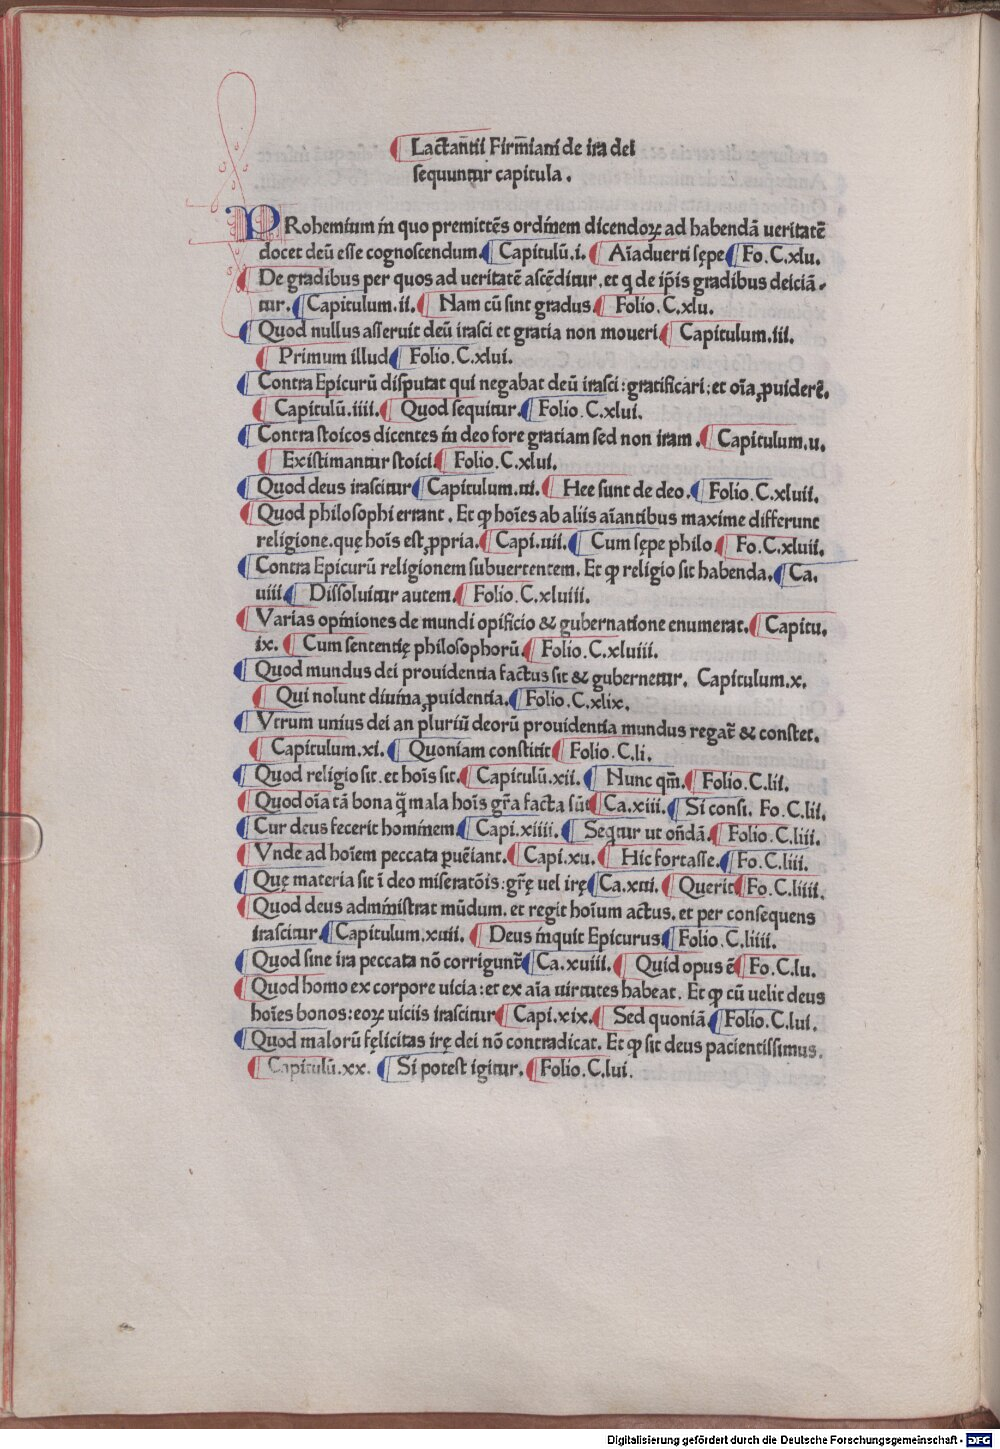 Lactan̄tii Firm̄iani de ira dei
sequuntur capitula.
PRohemium in quo premittēs ordinem dicendoꝝ ad habendā ueritatē
docet deū esse cognoscendum. Capitulū.i. Aīaduerti sępe Fo.C.xlu.
De gradibus per quos ad ueritatē ascēditur. et q de ip̄is gradibus deiciā-
tur. Capitulum.ii. Nam cū sint gradus. Folio.C.xlu.
Quod nullus asseruit deū irasci et gratia non moueri Capitulum.iii.
Primum illud Folio.C.xlui.
Contra Epicurū disputat qui negabat deū irasci: gratificari: et oīa ꝓuiderē.
Capitulū.iiii. Quod sequitur. Folio.C.xlui.
Contra stoicos dicentes in deo fore gratiam sed non iram. Capitulum.u.
Existimantur stoici Folio.C.xlui.
Quod deus irascitur Capitulum.ui. Hee sunt de deo. Folio.C.xluii.
Quod philosophi errant. Et ꝙ hoīes ab aliis aīantibus maxime differunt
religione. quę hoīs est ꝓpria. Capi.uii. Cum sępe philo Fo.C.xluii.
Contra Epicurū religionem subuertentem. Et ꝙ religio sit habenda. Ca.
uiii Dissoluitur autem. Folio.C.xluiii.
Varias opiniones de mundi opificio & gubernatione enumerat. Capitu.
ix. Cum sententię philosophorū. Folio.C.xluiii.
Quod mundus dei prouidentia factus sit & gubernetur. Capitulum.x.
Qui nolunt diuina ꝓuidentia. Folio.C.xlix.
Vtrum unius dei an pluriū deorū prouidentia mundus regat̄ & constet.
Capitulum.xi. Quoniam constitit Folio.C.li.
Quod religio sit. et hoīs sit. Capitulū.xii. Nunc qm̄. Folio.C.lii.
Quod oīa tā bona q̄ mala hoīs gr̄a facta sūt Ca.xiii. Si consi. Fo.C.lii.
Cur deus fecerit hominem Capi.xiiii. Seqtur ut on̄dā. Folio.C.liii.
Vnde ad hoīem peccata puēiant. Capi.xu. Hic fortasse. Fo.C.liii.
Quę materia sit ī deo miseratōis: gr̄ę uel irę Ca.xui. Querit Fo.C.liiii.
Quod deus administrat mūdum. et regit hoīum actus. et per consequens
irascitur Capitulum.xuii. Deus inquit Epicurus Folio.C.liiii.
Quod sine ira peccata nō corrigunt̄ Ca.xuiii. Quid opus ē Fo.C.lu.
Quod homo ex corpore uicia: et ex aīa uirtutes habeat. Et ꝙ cū uelit deus
hoīes bonos: eoꝝ uiciis irascitur Capi.xix. Sed quoniā Folio.C.lui.
Quod malorū fęlicitas irę dei nō contradicat. Et ꝙ sit deus pacientissimus.
Capitulū.xx. Si potest igitur. Folio.C.lui.
Digitalisierung gefördert durch die Deutsche Forschungsgemeinschaft - DFG